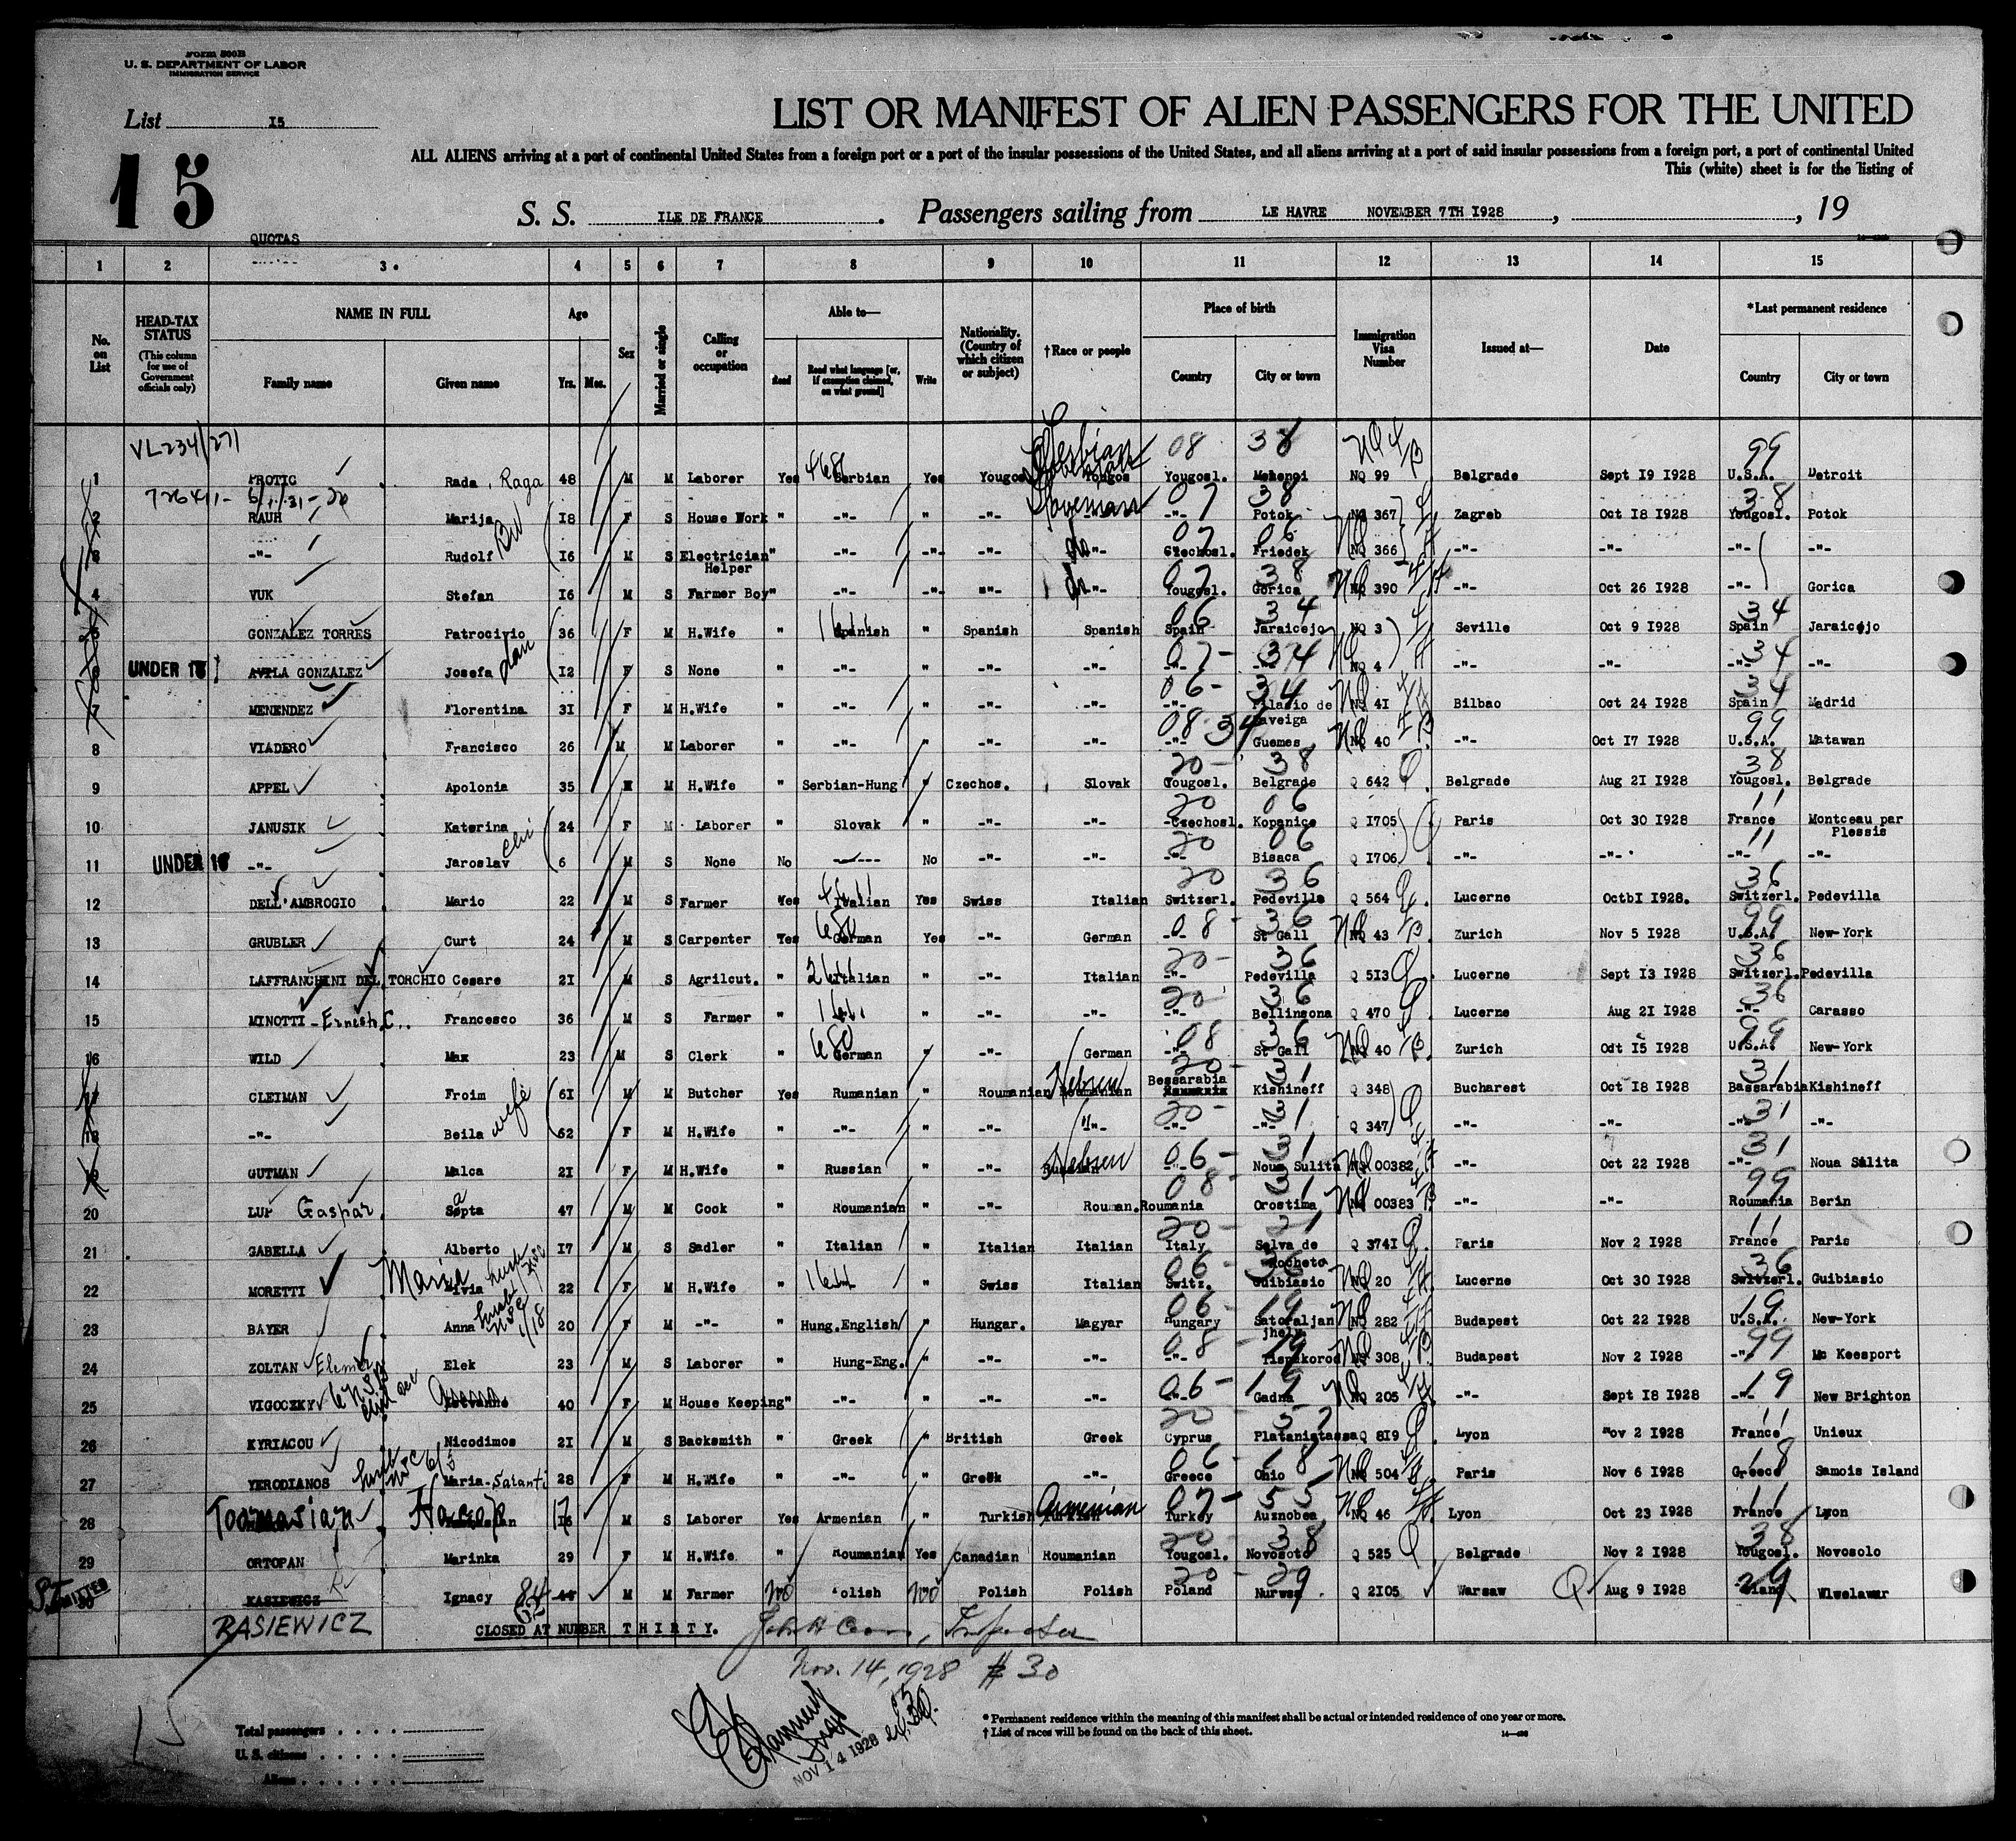 FORM 500B
U. S. DEPARTMENT OF LABOR
IMMIGRATION SERVICE
List 15
LIST OR MANIFEST OF ALIEN PASSENGERS FOR THE UNITED
15
ALL ALIENS arriving at a port of continental United States from a foreign port or a port of the insular possessions of the United States, and all aliens arriving at a port of said insular possessions from a foreign port, a port of continental United
This (white) sheet is for the listing of
S. S. ILE DE FRANCE . Passengers sailing from LE HAVRE NOVEMBER 7TH I928 , , 19
QUOTAS
1 2 3 4 5 6 7 8 9 10 11 12 13 14 15
No. on List HEAD-TAX STATUS (This column for use of Government officials only) NAME IN FULL Family name Given name Age Yrs. Mos. Sex Married or single Calling or occupation Able to— Read Read what language [or, if exemption claimed, on what ground] Write Nationality. (Country of which citizen or subject) †Race or people Place of birth Country City or town Immigration Visa Number Issued at— Date *Last permanent residence Country City or town
VL234/271 08 38 99
1 PROTIC Rada , Raga 48 M M Laborer Yes Serbian Yes Yougos Serbian Yougosl. NQ 99 Belgrade Sept I9 I928 U.S.A. Detroit
07 38 38
2 RAUH Marija I8 F S House Work " -"- " -"- Slovenian -"- Potok NQ 367 Zagreb Oct I8 I928 Yougosl. Potok
07 06
3 -"- Rudolf I6 M S Electrician Helper " -"- " -"- do -"- Czechosl. Friedek NQ 366 -"- -"- -"- -"-
07 38
4 VUK Stefan I6 M S Farmer Boy " -"- -"- -"- do -"- Yougosl. Gorica NQ 390 -"- Oct 26 I928 -"- Gorica
06 34 34
5 GONZALEZ TORRES Patrocivio 36 F M H.Wife " Spanish " Spanish Spanish Spain Jaraicejo NQ 3 Seville Oct 9 I928 Spain Jaraicejo
07- 34 34
6 UNDER 16 AVILA GONZALEZ Josefa I2 F S None -"- " -"- -"- -"- NQ 4 -"- -"- -"- -"-
06- 34 34
7 MENENDEZ Florentina 3I F M H.Wife " -"- " -"- -"- -"- NQ 4I Bilbao Oct 24 I928 Spain Madrid
08 34 99
8 VIADERO Francisco 26 M M Laborer " -"- " -"- -"- -"- Guemes NQ 40 -"- Oct I7 I928 U.S.A. Matawan
20- 38 38
9 APPEL Apolonia 35 M H.Wife " Serbian-Hung " Czechos. Slovak Yougosl. Belgrade Q 642 Belgrade Aug 2I I928 Yougosl. Belgrade
20 06 11
10 JANUSIK Katerina 24 F M Laborer " Slovak " -"- -"- Czechosl. Kopanice Q I705 Paris Oct 30 I928 France Montceau par Plessis
20 06 11
11 UNDER 16 -"- Jaroslav 6 M S None No ----- No -"- -"- -"- Bisaca Q I706 -"- -"- -"- -"-
20 36 36
12 DELL'AMBROGIO Mario 22 M S Farmer Yes Italian Yes Swiss Italian Switzerl. Pedevilla Q 564 Lucerne OctbI I928. Switzerl. Pedevilla
08- 36 99
13 GRUBLER Curt 24 M S Carpenter Yes German Yes -"- German -"- St Gall NQ 43 Zurich Nov 5 I928 U.S.A. New-York
20- 36 36
14 LAFFRANCHINI DEL TORCHIO Cesare 2I M S Agrilcut. " Italian " -"- Italian -"- Pedevilla Q 5I3 Lucerne Sept I3 I928 Switzerl. Pedevilla
20 36 36
15 MINOTTI Francesco 36 M S Farmer " " -"- -"- -"- Bellinsona Q 470 Lucerne Aug 2I I928 -"- Carasso
08 36 99
16 WILD Max 23 M S Clerk " German " -"- German -"- St Gall NQ 40 Zurich Odt I5 I928 U.S.A. New-York
20- 31 31
17 CLEIMAN Froim 6I M M Butcher Yes Rumanian " Roumanian Hebrew Bessarabia Kishineff Q 348 Bucharest Oct I8 I928 Bassarabia Kishineff
20- 31 31
18 -"- Beila wife 62 F M H.Wife " -"- " -"- -"- -"- -"- Q 347 -"- -"- -"- -"-
06- 31 31
19 GUTMAN Malca 2I F M H.Wife " Russian " -"- Hebrew -"- Noua Sulita NQ 00382 -"- Oct 22 I928 -"- Noua Sulita
08- 31 99
20 LUP Gaspar Sapta 47 M M Cook " Roumanian " -"- Rouman. Roumania Orostima NQ 00383 -"- -"- Roumania Berin
20- 21 11
21 GABELLA Alberto I7 M S Sadler " Italian " Italian Italian Italy Selva de Q 374I Paris Nov 2 I928 France Paris
06- 36 36
22 MORETTI Maria 22 F M H.Wife " " Swiss Italian Switz. Guibiasio NQ 20 Lucerne Oct 30 I928 Switzerl. Guibiasio
06- 19 19
23 BAYER Anna 20 F M -"- " Hung.English " Hungar. Magyar Hungary Satoraljan jhely NQ 282 Budapest Oct 22 I928 U.S.A. New-York
08- 19 99
24 ZOLTAN Elemer Elek 23 M S Laborer " Hung-Eng. " -"- -"- -"- NQ 308 Budapest Nov 2 I928 -"- Mc Keesport
06- 19 19
25 VIGOCZKY 40 F M House Keeping " -"- " -"- -"- -"- Gadna NQ 205 -"- Sept I8 I928 -"- New Brighton
20- 57 11
26 KYRIACOU Nicodimos 2I M S Backsmith " Greek " British Greek Cyprus Platanistassa Q 8I9 Lyon Nov 2 I928 France Unieux
06- 18 18
27 YERODIANOS Maria 28 F M H.Wife " -"- " Greek -"- Greece Ohio NQ 504 Paris Nov 6 I928 Greece Samois Island
07- 55 11
28 Toomasian Hacop 17 M S Laborer Yes Armenian " Turkish Armenian Turkey Auznobea NQ 46 Lyon Oct 23 I928 France Lyon
20- 38 38
29 ORTOPAN Marinka 29 F M H.Wife " Roumanian Yes Canadian Roumanian Yougosl. Novosoto Q 525 Belgrade Nov 2 I928 Yougosl. Novosolo
20- 29 29
30 ADMITTED KASIEWICZ Ignacy M M Farmer No Polish No Polish Polish Poland Nurwss Q 2I05 Warsaw Aug 9 I928 Wlwelawar
BASIEWICZ CLOSED AT NUMBER THIRTY. Inspector
Nov. 14, 1928 # 30
15
NOV 14 1928
Total passengers . . . .
U. S. citizens . . . . .
Aliens . . . . . .
* Permanent residence within the meaning of this manifest shall be actual or intended residence of one year or more.
† List of races will be found on the back of this sheet.